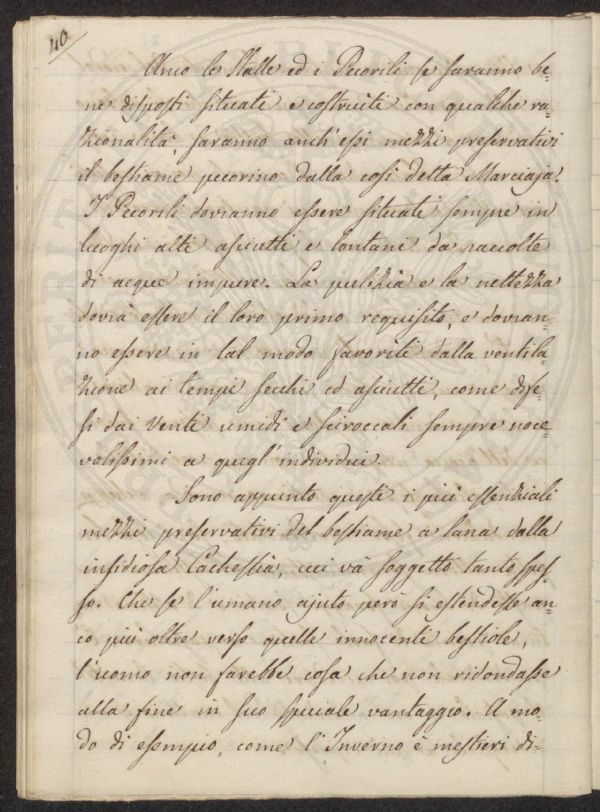 40.
Anco le Stalle ed i Pecorili se saranno be=
ne disposti situati e costruiti con qualche ra=
zionalità, saranno anch'essi mezzi preservativi
il bestiame pecorino dalla così detta Marciaja.
I Pecorili dovranno essere situati sempre in
luoghi alti asciutti e lontani da raccolte
di acque impure. La pulizia e la nettezza
dovrà essere il loro primo requisito, e dovran=
no essere in tal modo favoriti dalla ventila
zione ai tempi secchi ed asciutti, come dife=
si dai Venti umidi e sciroccali sempre noce=
volissimi a quegl'individui.
Sono appunto questi i più essenziali
mezzi preservativi del bestiame a lana dalla
insidiosa Cachessia, cui và soggetto tanto spes=
so. Che se l'umano ajuto però si estendesse an=
co più oltre verso quelle innocenti bestiole,
l'uomo non farebbe cosa che non ridondasse
alla fine in suo speciale vantaggio. A mo=
do di esempio, come l'Inverno è mestieri di=